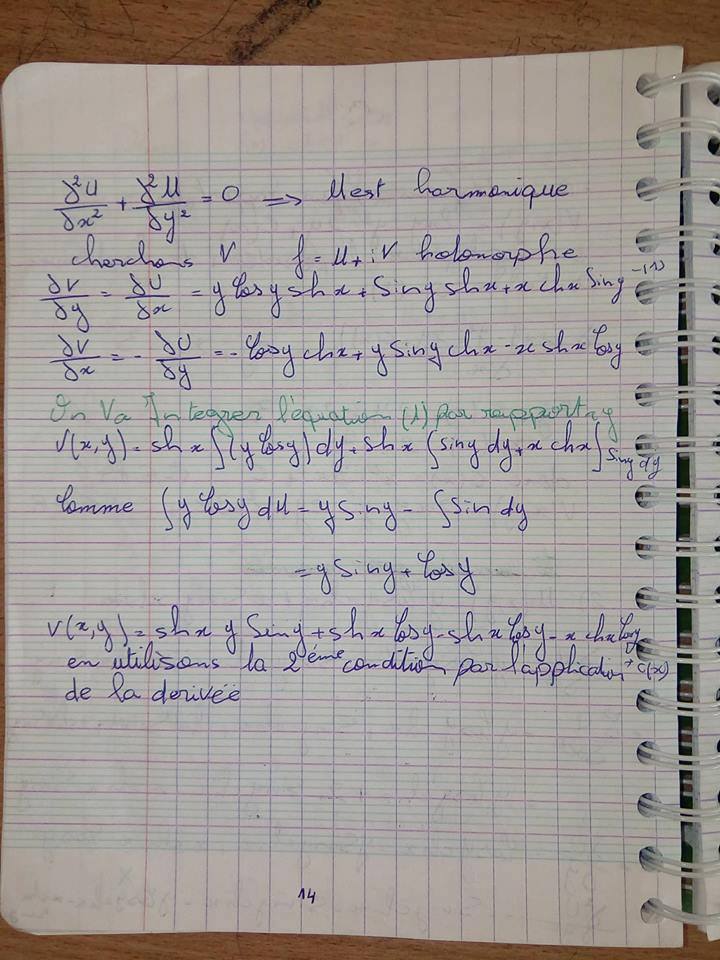 ∂²U/∂x² + ∂²U/∂y² = 0 => U est harmonique
cherchons V f = U + iV holomorphe
∂V/∂y = ∂U/∂x = y Cosy shx + Siny shx + x chx Siny —(1)
∂V/∂x = - ∂U/∂y = - Cosy chx + y Siny chx - x shx Cosy
On Va Integrer l'équation (1) par rapport à y
V(x,y) = shx ∫(y Cosy) dy + shx ∫ siny dy + x chx ∫ Siny dy
Comme ∫ y Cosy dU = y Siny - ∫ Sin dy
= y Siny + Cos y
V(x,y) = shx y Siny + shx Cosy - shx Cosy - x chx Cosy + c(x)
en utilisons la 2éme condition par l'application
de la derivée
14